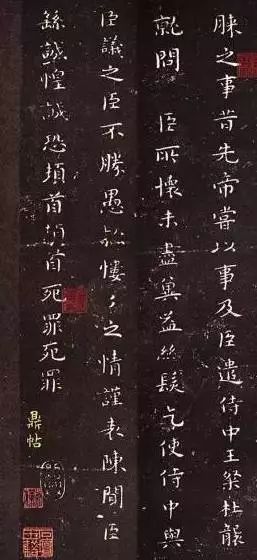 之事昔先帝嘗以事及臣遣侍中王粲杜襲
就問 臣所懷未盡冀益絲髮乞使侍中與
臣議之臣不勝愚款慺々之情謹表陳聞臣
繇誠惶誠恐頓首頓首死罪死罪
鼎帖